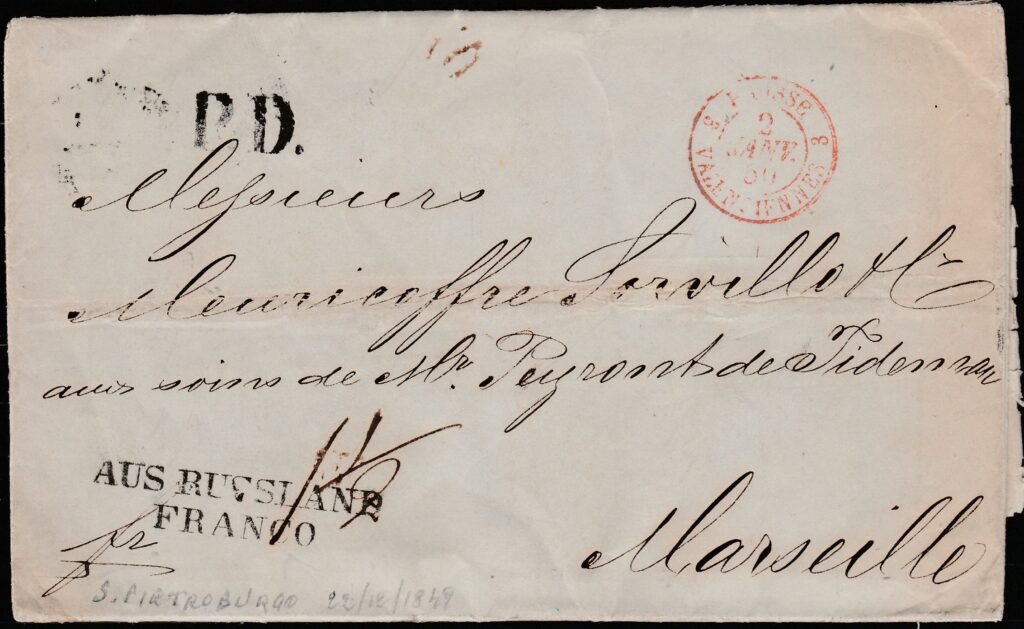 P.D.
PRUSSE
2
JANV.
50
8 VALENCIENNES 8
Messieurs
Meuricoffre Sorvillo & Cie
aux soins de Mr. Peyront de Tideman
1 1/2
AUS RUSSLAND
FRANCO
fr
Marseille
S. PIETROBURGO 22/12/1849